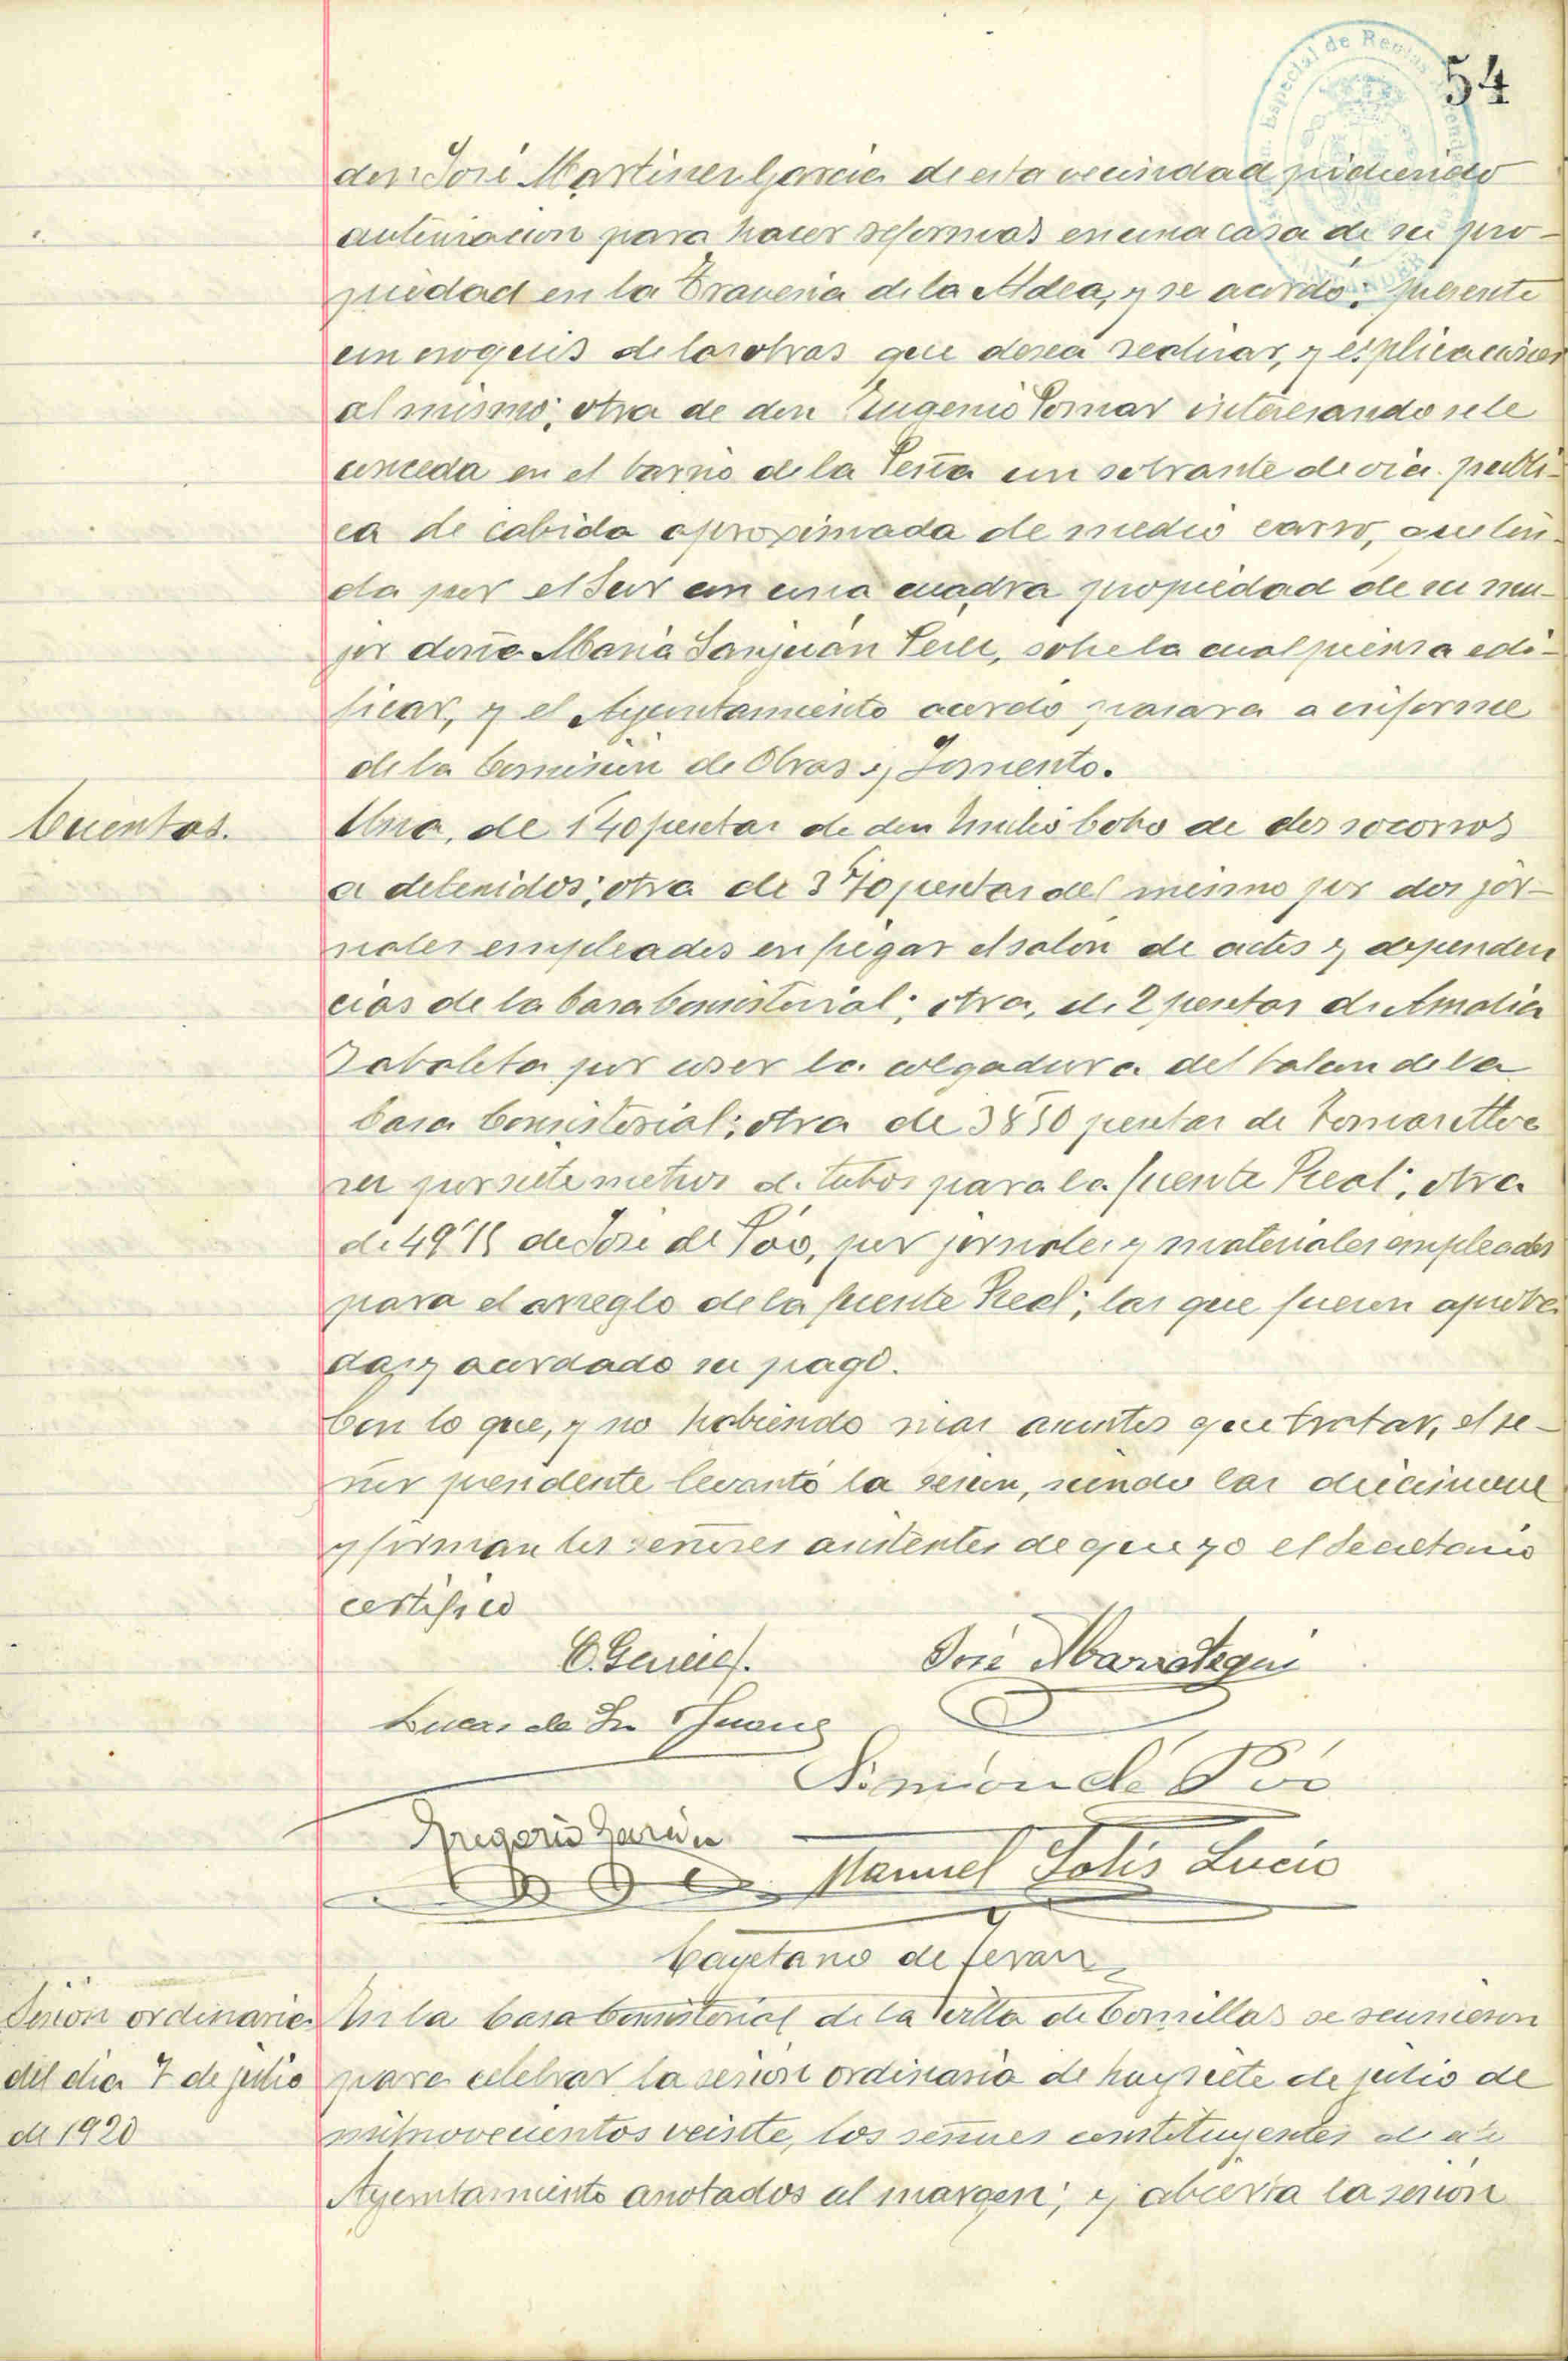 54
don José Martinez Garcia de esta vecindad pidiendo
autorizacion para hacer reformas en una casa de su pro-
piedad en la Travesia de la Aldea, y se acordó: presente
un croquis de las obras que desea realizar, y explicaciones
al mismo; otra de don Eugenio Pomar interesando se le
conceda en el barrio de la Peña un sobrante de via publi-
ca de cabida aproximada de medio carro, que lin-
da por el Sur con una cuadra propiedad de su mu-
jer doña Maria Sanjuán, sobre la cual piensa edi-
ficar, y el Ayuntamiento acordó pasara a informe
de la Comisión de Obras y Fomento.
Cuentas.
Una, de 1'40 pesetas de don Cobo de dos socorros
a detenidos; otra de pesetas del mismo por dos jor-
nales empleados en fregar el salón de actos y dependen
cias de la Casa Consistorial; otra, de 2 pesetas de Amalia
Zabaleta por coser la colgadura del balcon de la
Casa Consistorial; otra de 38'50 pesetas de
por siete metros de tubos para la fuente Real; otra
de de José de Póo, por jornales y materiales empleados
para el arreglo de la fuente Real; las que fueron aproba
das y acordado su pago.
Con lo que, y no habiendo mas asuntos que tratar, el se-
ñor presidente levantó la sesion, siendo las diecinueve
y firman los señores asistentes de que yo el Secretario
certifico
José Marrategui
Lucas de
Simón de Póo
Gregorio Garcia
Manuel Solis Lucio
Cayetano de Teran
Sesión ordinaria
del dia 7 de julio
de 1920
En la Casa Consistorial de la Villa de Comillas se reunieron
para celebrar la sesión ordinaria de hoy siete de julio de
mil novecientos veinte, los señores constituyentes de este
Ayuntamiento anotados al margen; y abierta la sesión